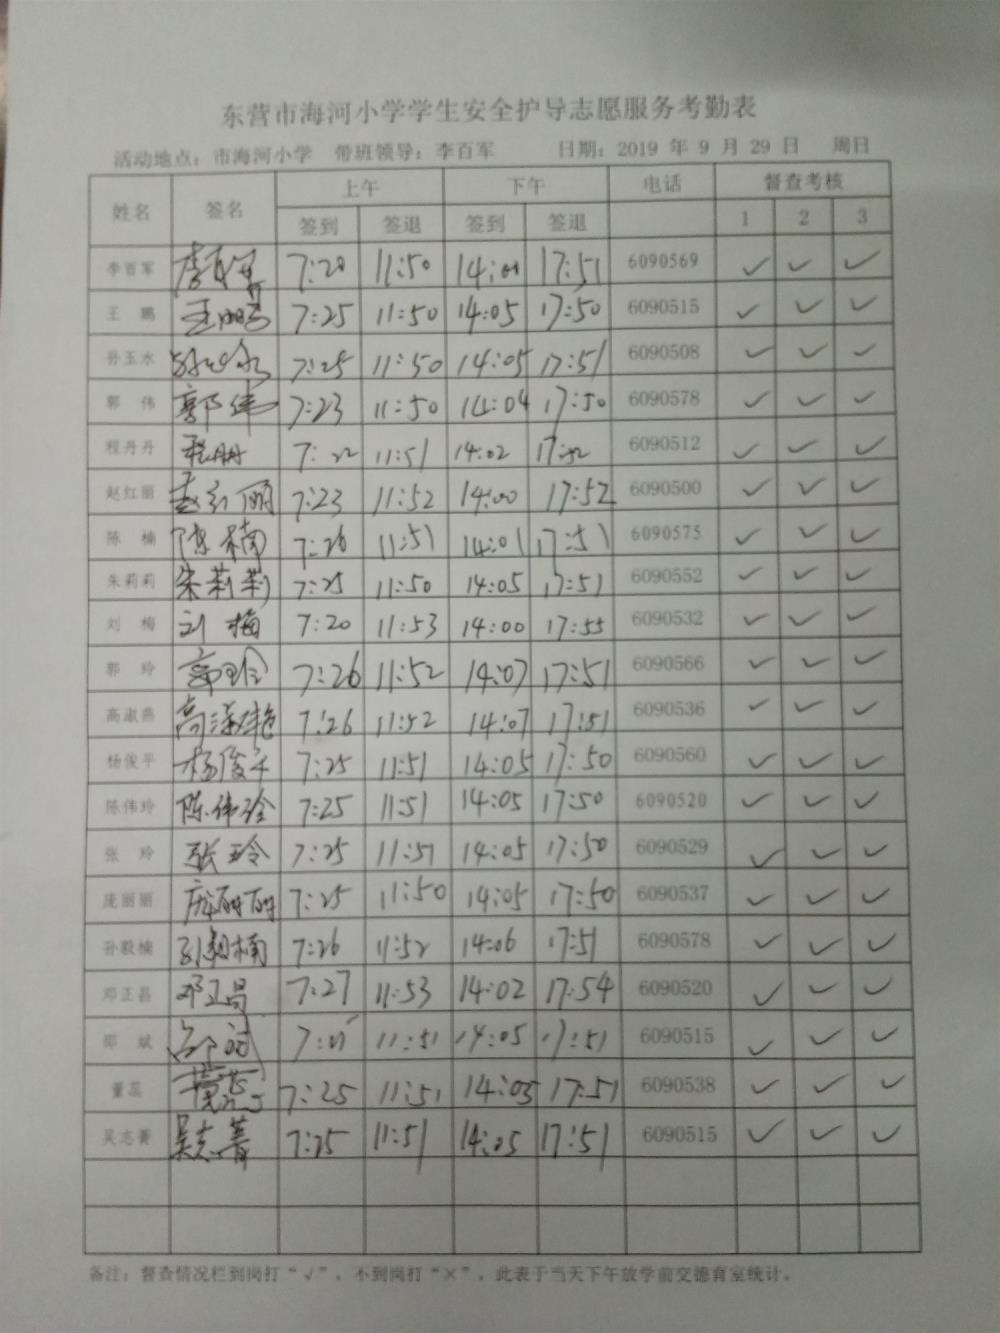 东营市海河小学学生安全护导志愿服务考勤表
活动地点：市海河小学 带班领导：李百军 日期：2019 年 9 月 29 日 周日
姓名 签名 上午 下午 电话 督查考核
签到 签退 签到 签退 1 2 3
李百军 李百军 7:20 11:50 14:01 17:51 6090569 ✓ ✓ ✓
王 鹏 王鹏 7:25 11:50 14:05 17:50 6090515 ✓ ✓ ✓
孙玉水 孙玉水 7:25 11:50 14:05 17:51 6090508 ✓ ✓ ✓
郭 伟 郭伟 7:23 11:50 14:04 17:50 6090578 ✓ ✓ ✓
程丹丹 程丹丹 7:22 11:51 14:02 17:52 6090512 ✓ ✓ ✓
赵红丽 赵红丽 7:23 11:52 14:00 17:52 6090500 ✓ ✓ ✓
陈 楠 陈楠 7:26 11:51 14:01 17:51 6090575 ✓ ✓ ✓
朱莉莉 朱莉莉 7:25 11:50 14:05 17:51 6090552 ✓ ✓ ✓
刘 梅 刘梅 7:20 11:53 14:00 17:55 6090532 ✓ ✓ ✓
郭 玲 郭玲 7:26 11:52 14:07 17:51 6090566 ✓ ✓ ✓
高淑燕 高淑艳 7:26 11:52 14:07 17:51 6090536 ✓ ✓ ✓
杨俊平 杨俊平 7:25 11:51 14:05 17:50 6090560 ✓ ✓ ✓
陈伟玲 陈伟玲 7:25 11:51 14:05 17:50 6090520 ✓ ✓ ✓
张 玲 张玲 7:25 11:51 14:05 17:50 6090529 ✓ ✓ ✓
庞丽丽 庞丽丽 7:25 11:50 14:05 17:50 6090537 ✓ ✓ ✓
孙毅楠 孙毅楠 7:26 11:52 14:06 17:51 6090578 ✓ ✓ ✓
邓正昌 邓正昌 7:27 11:53 14:02 17:54 6090520 ✓ ✓ ✓
邵 斌 邵斌 11:51 14:05 17:51 6090515 ✓ ✓ ✓
董蕊 董蕊 7:25 11:51 14:05 17:51 6090538 ✓ ✓ ✓
吴志菁 吴志菁 7:25 11:51 14:05 17:51 6090515 ✓ ✓ ✓
备注：督查情况栏到岗打“√”，不到岗打“×”，此表于当天下午放学前交德育室统计。